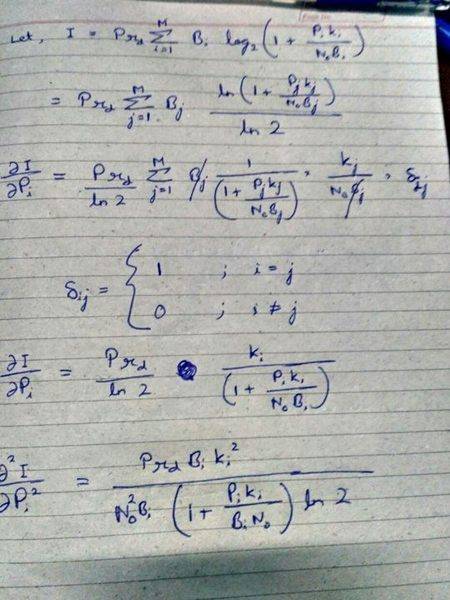 Let, I = Pr_d ∑_{i=1}^{M} B_i log_2 (1 + P_i k_i / N_o B_i)
= Pr_d ∑_{j=1}^{M} B_j ln(1 + P_j k_j / N_o B_j) / ln 2
∂I/∂P_i = Pr_d / ln 2 ∑_{j=1}^{M} B_j 1 / (1 + P_j k_j / N_o B_j) · k_j / N_o B_j · δ_{ij}
δ_{ij} = { 1 ; i = j
0 ; i ≠ j
∂I/∂P_i = Pr_d / ln 2 k_i / (1 + P_i k_i / N_o B_i)
∂²I/∂P_i² = Pr_d B_i k_i² / N_o² B_i (1 + P_i k_i / B_i N_o) ln 2